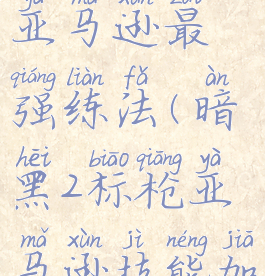 yà mǎ xùn zuì
亚马逊最
qiáng liàn fǎ àn
强练法(暗
hēi biāo qiāng yà
黑2标枪亚
mǎ xùn jì néng jiā
马逊技能加